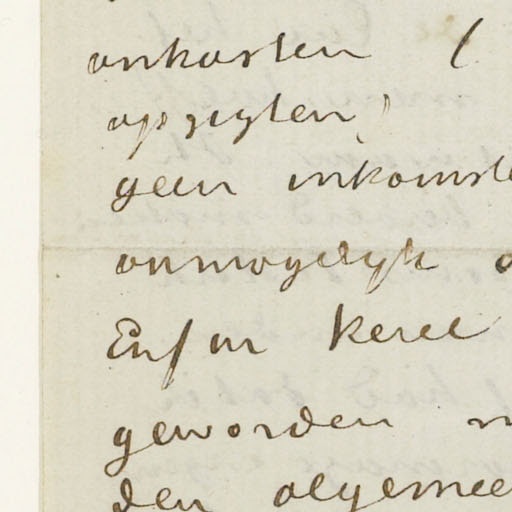 onkosten (
opzigten)
geen inkomste
onmogelyk
Enfin kerel
geworden
den algemee